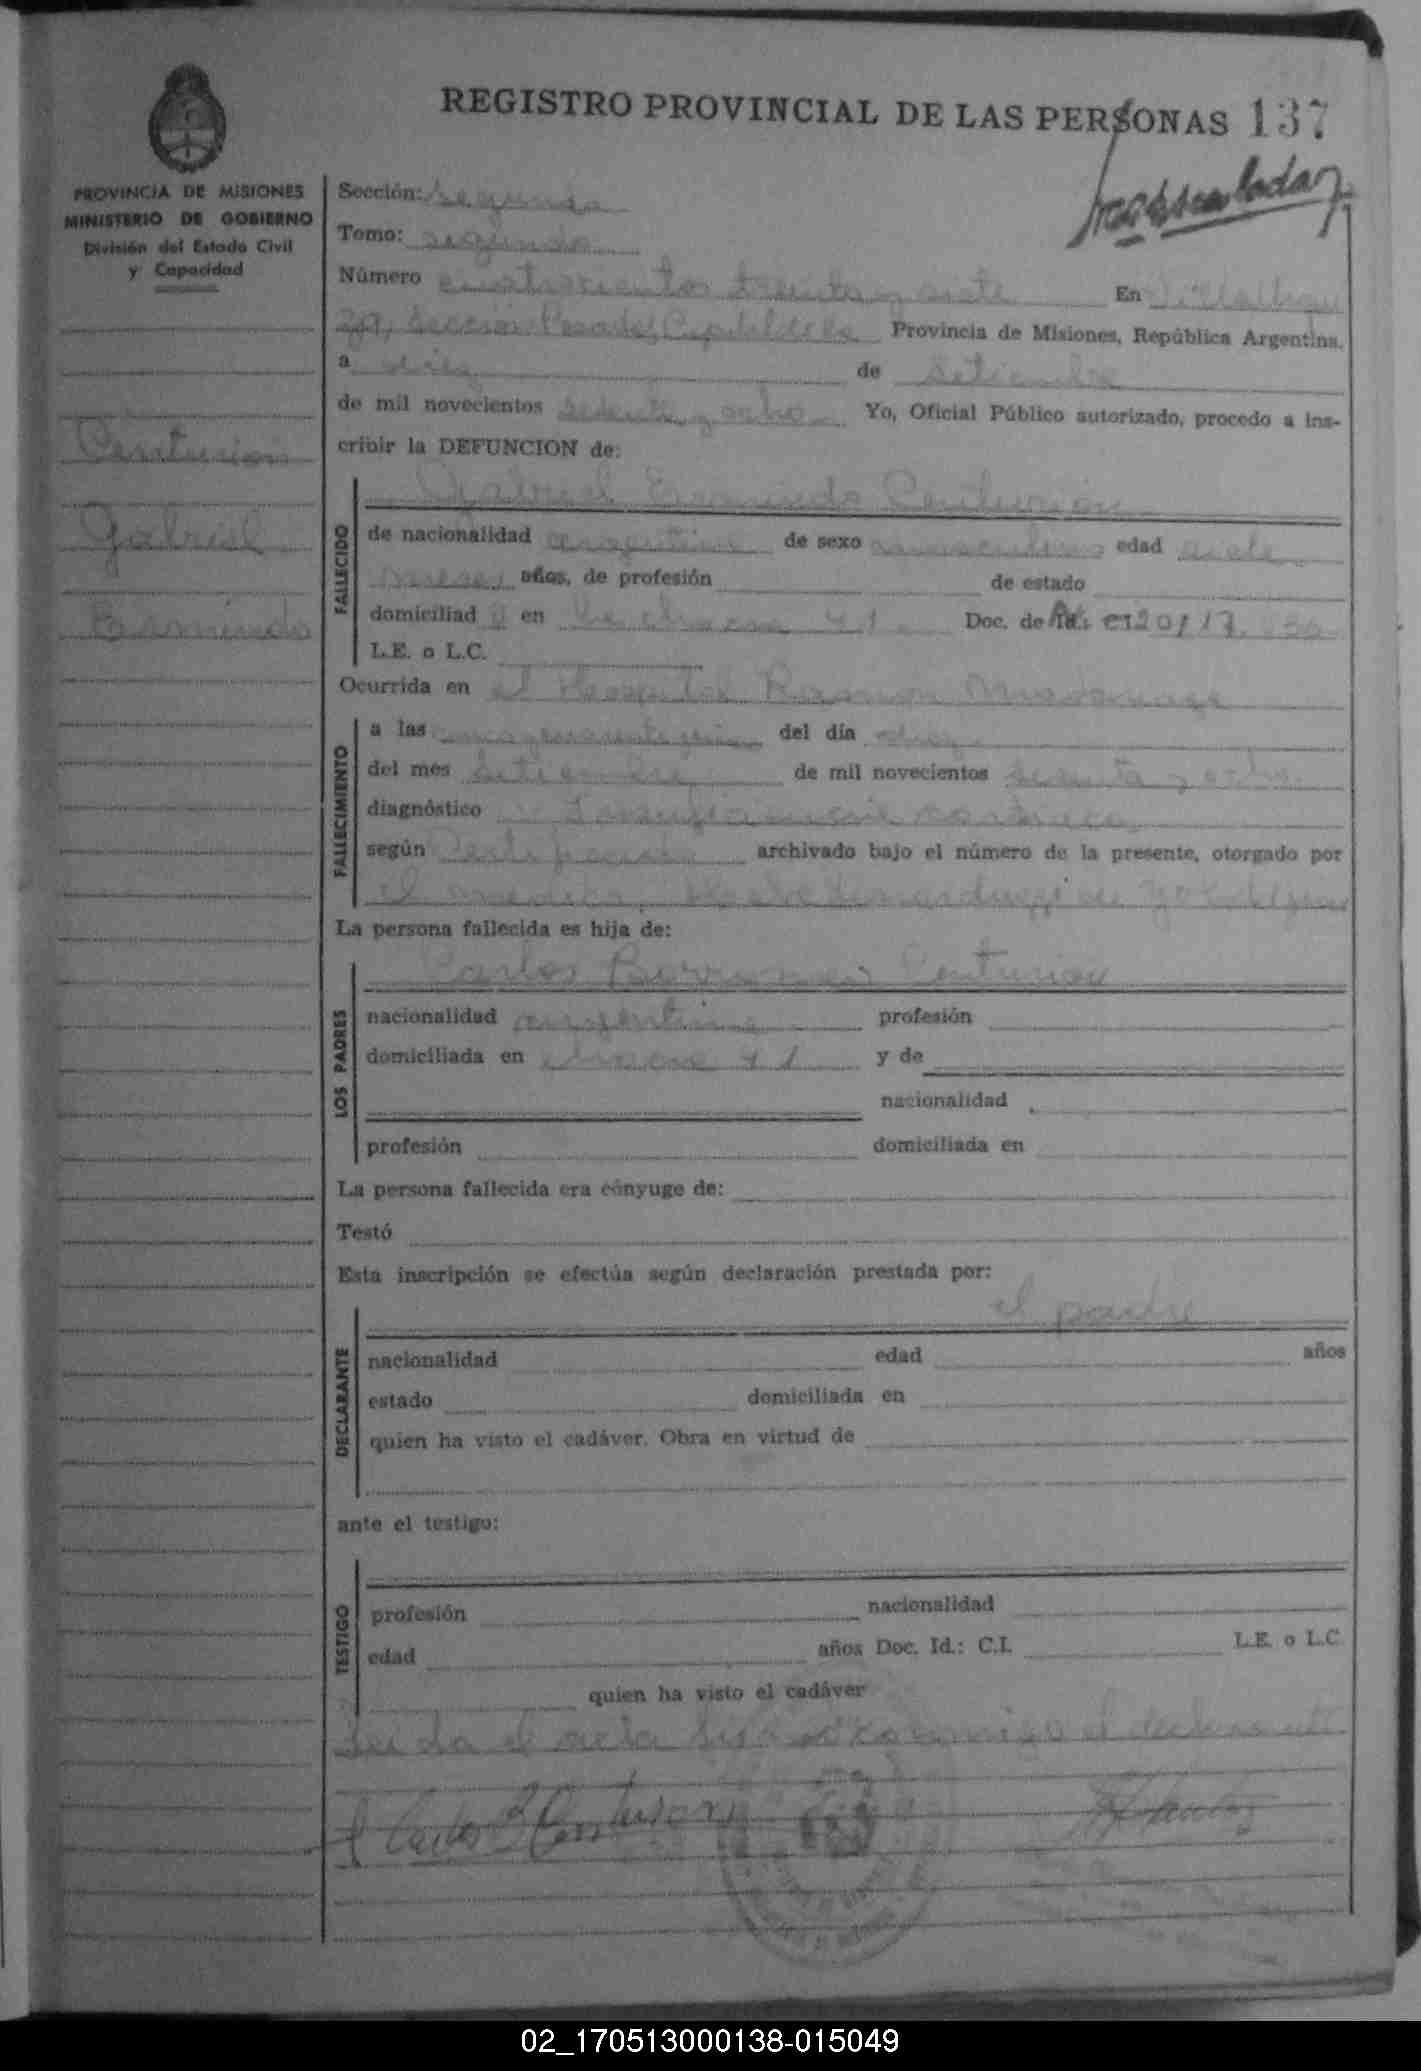 REGISTRO PROVINCIAL DE LAS PERSONAS 137
PROVINCIA DE MISIONES
MINISTERIO DE GOBIERNO
División del Estado Civil
y Capacidad
Centurion
Gabriel
Erminndo
Sección: segunda
Tomo: segundo
Número cuatrocientos treinta y siete En
Sección Posadas, Capital de la Provincia de Misiones, República Argentina,
a diez de Setiembre
de mil novecientos setenta y ocho Yo, Oficial Público autorizado, procedo a ins-
cribir la DEFUNCION de:
Gabriel Centurion
FALLECIDO
de nacionalidad argentina de sexo masculino edad siete
meses años, de profesión de estado
domiciliad o en la chacra 41 Doc. de
L.E. o L.C.
Ocurrida en el Hospital Ramon Madariaga
FALLECIMIENTO
a las del día diez
del mes Setiembre de mil novecientos setenta y ocho
diagnóstico Insuficiencia cardiaca
según Certificado archivado bajo el número de la presente, otorgado por
el medico
La persona fallecida es hija de:
Carlos Centurion
LOS PADRES
nacionalidad argentina profesión
domiciliada en chacra 41 y de
nacionalidad
profesión domiciliada en
La persona fallecida era cónyuge de:
Testó
Esta inscripción se efectúa según declaración prestada por:
el padre
DECLARANTE
nacionalidad edad años
estado domiciliada en
quien ha visto el cadáver. Obra en virtud de
ante el testigo:
TESTIGO
profesión nacionalidad
edad años Doc. Id.: C.I. L.E. o L.C.
quien ha visto el cadáver
Leida el acta firma conmigo el declarante
Carlos Centurion
02_170513000138-015049